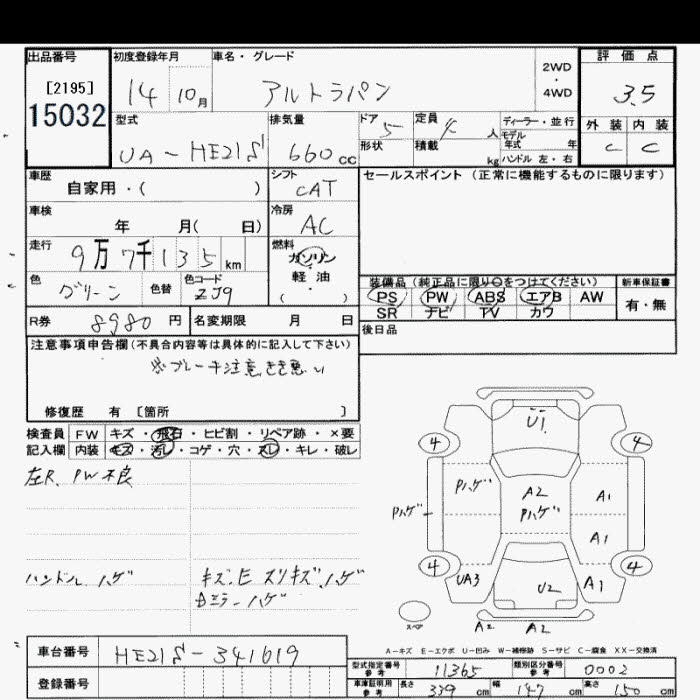 出品番号
[2195]
15032
初度登録年月
14 10月
車名・グレード
アルトラパン
2WD
・
4WD
評価点
3.5
外装 内装
C C
型式
UA-HE21S
排気量
660cc
ドア 5
形状
定員 4人
積載 kg
ディーラー・並行
モデル年式 年
ハンドル 左・右
車歴
自家用・( )
シフト
CAT
車検
年 月( 日)
冷房
AC
走行
9万7千135km
燃料
ガソリン
・
軽油
( ・ )
色
グリーン
色替
色コード
ZJ9
R券 8980円
名変期限 月 日
セールスポイント (正常に機能するものに限ります)
装備品(純正品に限り〇をつけてください)
PS PW ABS エアB AW
SR ナビ TV カワ
新車保証書
有・無
後日品
注意事項申告欄(不具合内容等は具体的に記入して下さい)
※ブレーキ注意きき悪い
修復歴 有 [箇所 ]
検査員記入欄
FW キズ・飛石・ヒビ割・リペア跡・×要
内装 キズ・汚レ・コゲ・穴・スレ・キレ・破レ
左R、PW不良
ハンドルハゲ
キズ.E スリキズ.ハゲ
ミラーハゲ
U1
4 4
Pハゲ
A2
Pハゲ
A1
Pハゲ
A1
4 4
UA3
U2
A1
スペア
A2 A2
A-キズ E-エクボ U-凹み W-補修跡 S-サビ C-腐食 XX-交換済
車台番号 HE21S-341619
登録番号
型式指定番号
参考
11365
類別区分番号
参考
0002
車庫証明用
参考
長さ 339cm 幅 147cm 高さ 150cm